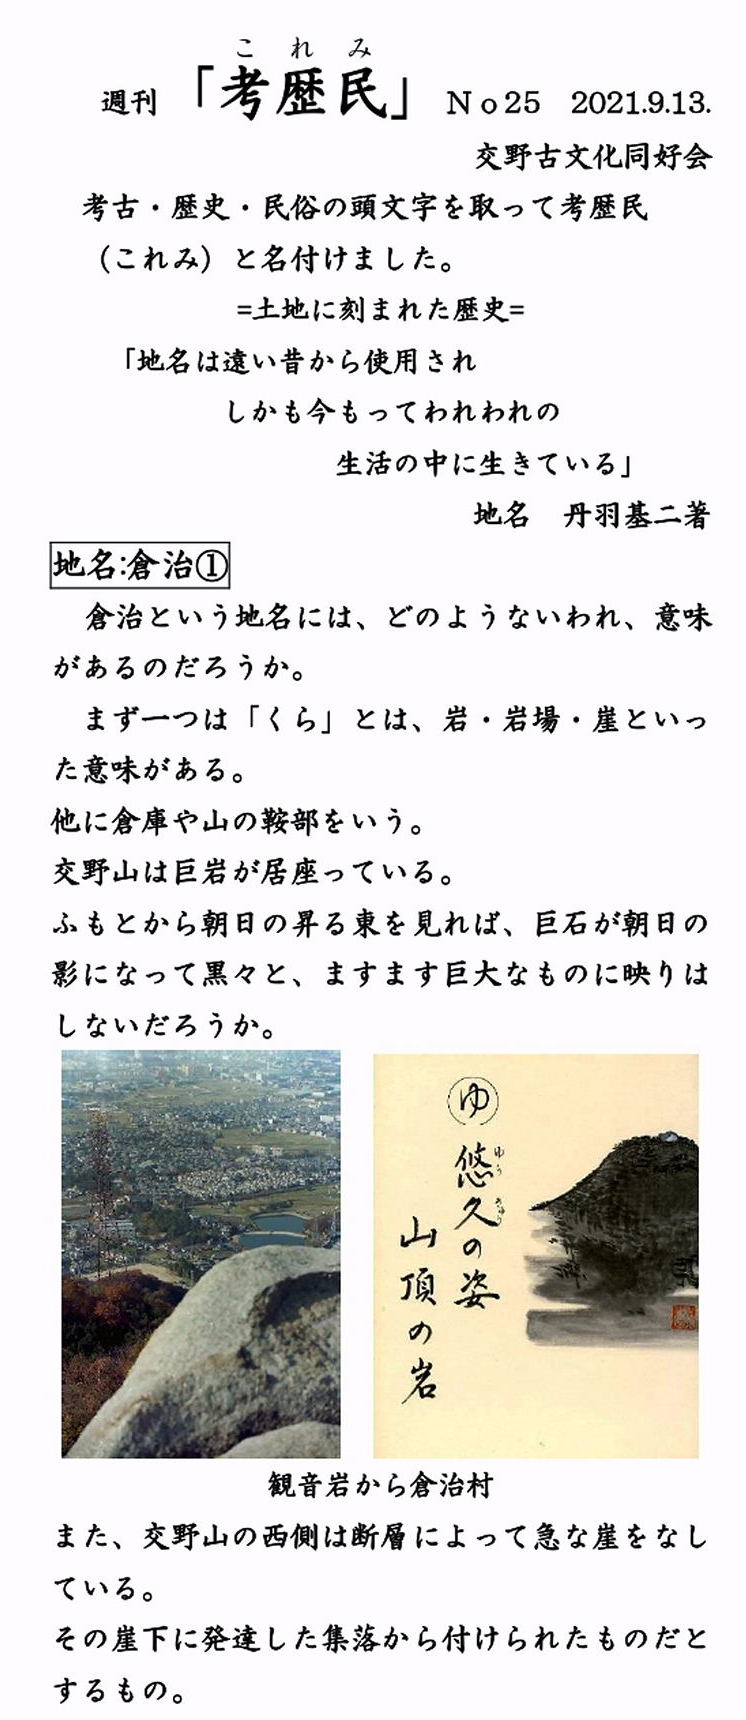 これみ
週刊 「考歴民」 No25 2021.9.13.
交野古文化同好会
考古・歴史・民俗の頭文字を取って考歴民
(これみ)と名付けました。
=土地に刻まれた歴史=
「地名は遠い昔から使用され
しかも今もってわれわれの
生活の中に生きている」
地名 丹羽基二著
地名:倉治①
倉治という地名には、どのようないわれ、意味
があるのだろうか。
まず一つは「くら」とは、岩・岩場・崖といっ
た意味がある。
他に倉庫や山の鞍部をいう。
交野山は巨岩が居座っている。
ふもとから朝日の昇る東を見れば、巨石が朝日の
影になって黒々と、ますます巨大なものに映りは
しないだろうか。
ゆ
悠久の姿
ゆうきゅう
山頂の岩
観音岩から倉治村
また、交野山の西側は断層によって急な崖をなし
ている。
その崖下に発達した集落から付けられたものだと
するもの。